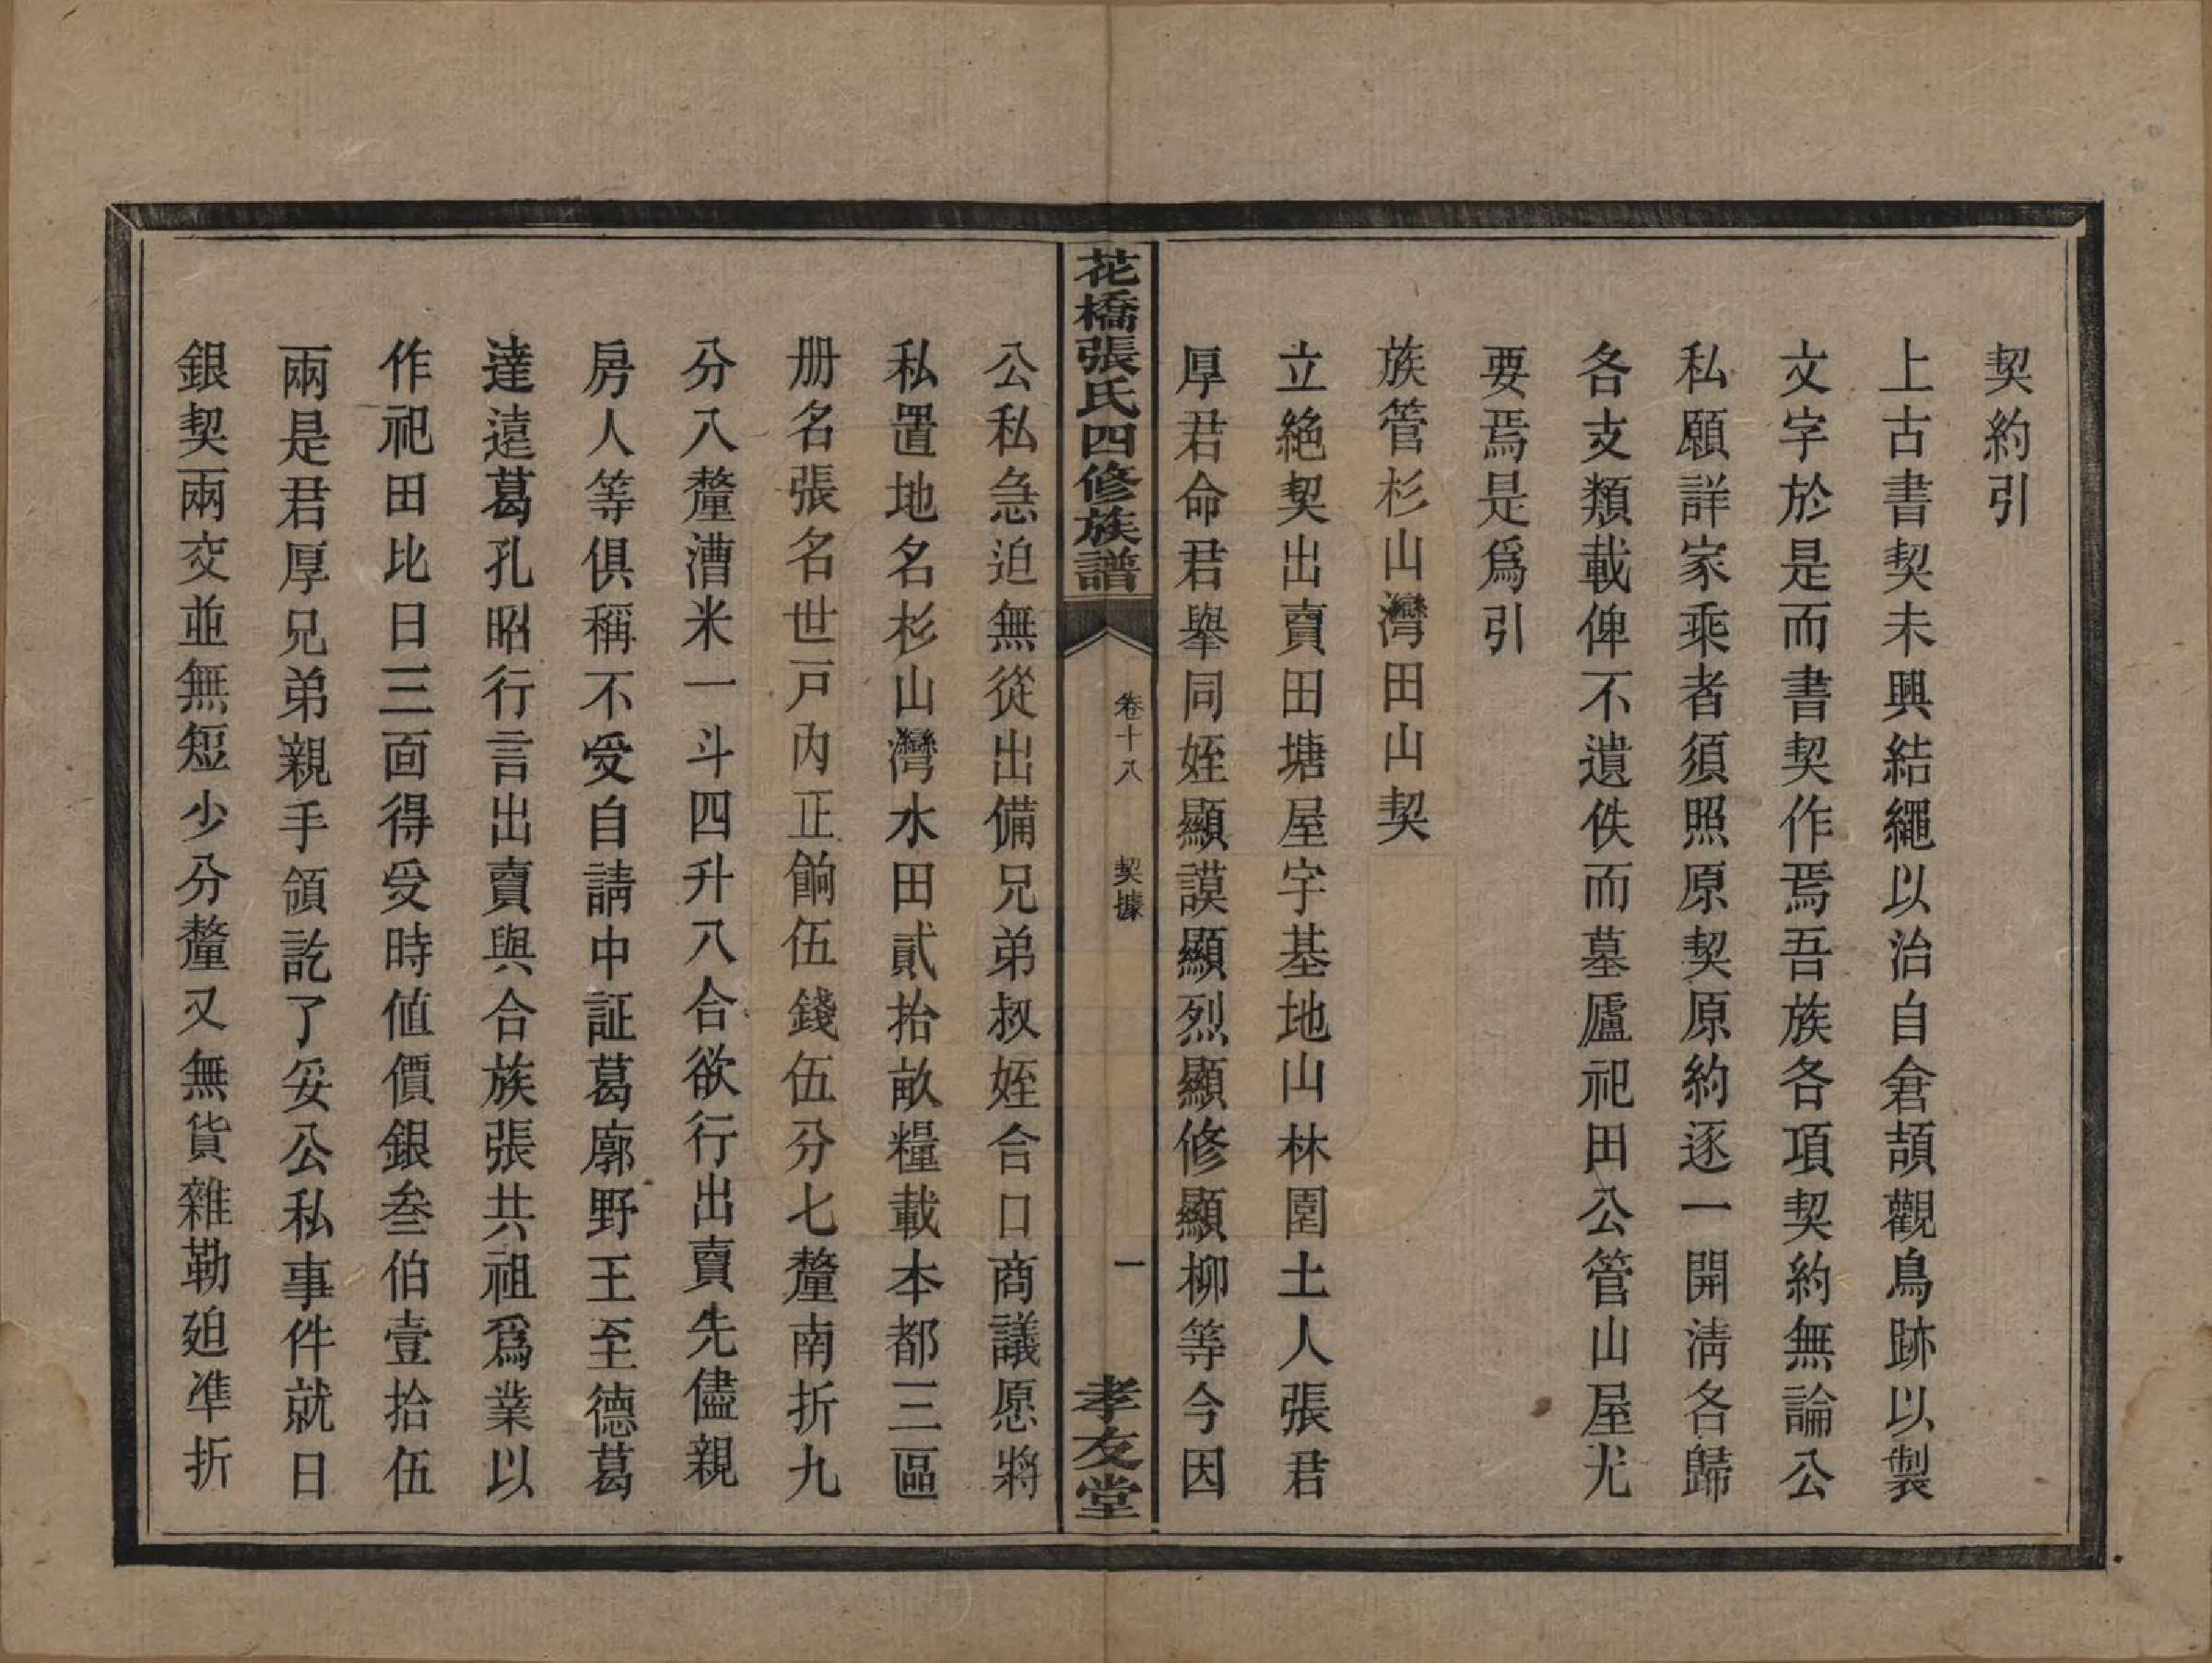 契約引
上古書契未興結繩以治自倉頡觀鳥跡以製
文字於是而書契作焉吾族各項契約無論公
私願詳家乘者須照原契原約逐一開淸各歸
各支類載俾不遺佚而墓廬祀田公管山屋尤
要焉是爲引
族管杉山灣田山契
立絶契出賣田塘屋宇基地山林園土人張君
厚君命君舉同姪顯謨顯烈顯修顯柳等今因
花橋張氏四修族譜
卷十八
契據
一
孝友堂
公私急迫無從出備兄弟叔姪合口商議愿將
私置地名杉山灣水田貳拾畝糧載本都三區
册名張名世戸內正餉伍錢伍分七釐南折九
分八釐漕米一斗四升八合欲行出賣先儘親
房人等俱稱不受自請中証葛廓野王至德葛
達遠葛孔昭行言出賣與合族張共祖爲業以
作祀田比日三面得受時値價銀叁伯壹拾伍
兩是君厚兄弟親手領訖了妥公私事件就日
銀契兩交並無短少分釐又無貨雜勒廹準折